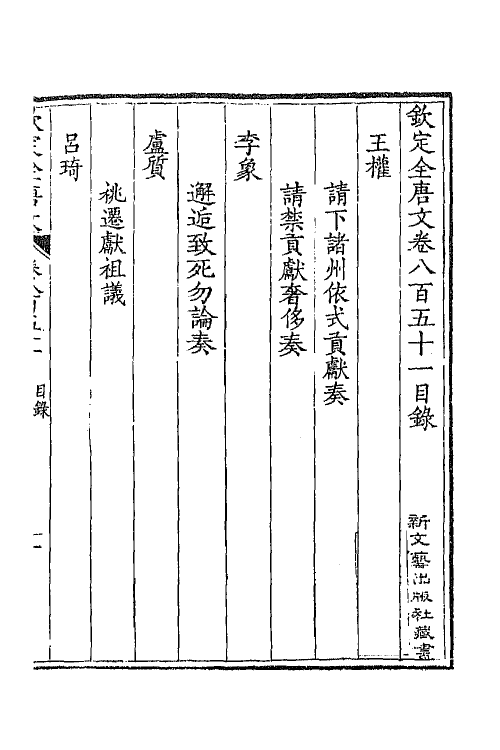 欽定全唐文卷八百五十一目錄
新文藝出版社藏書
王權
請下諸州依式貢獻奏
請禁貢獻奢侈奏
李象
邂逅致死勿論奏
盧質
祧遷獻祖議
呂琦
目錄
一